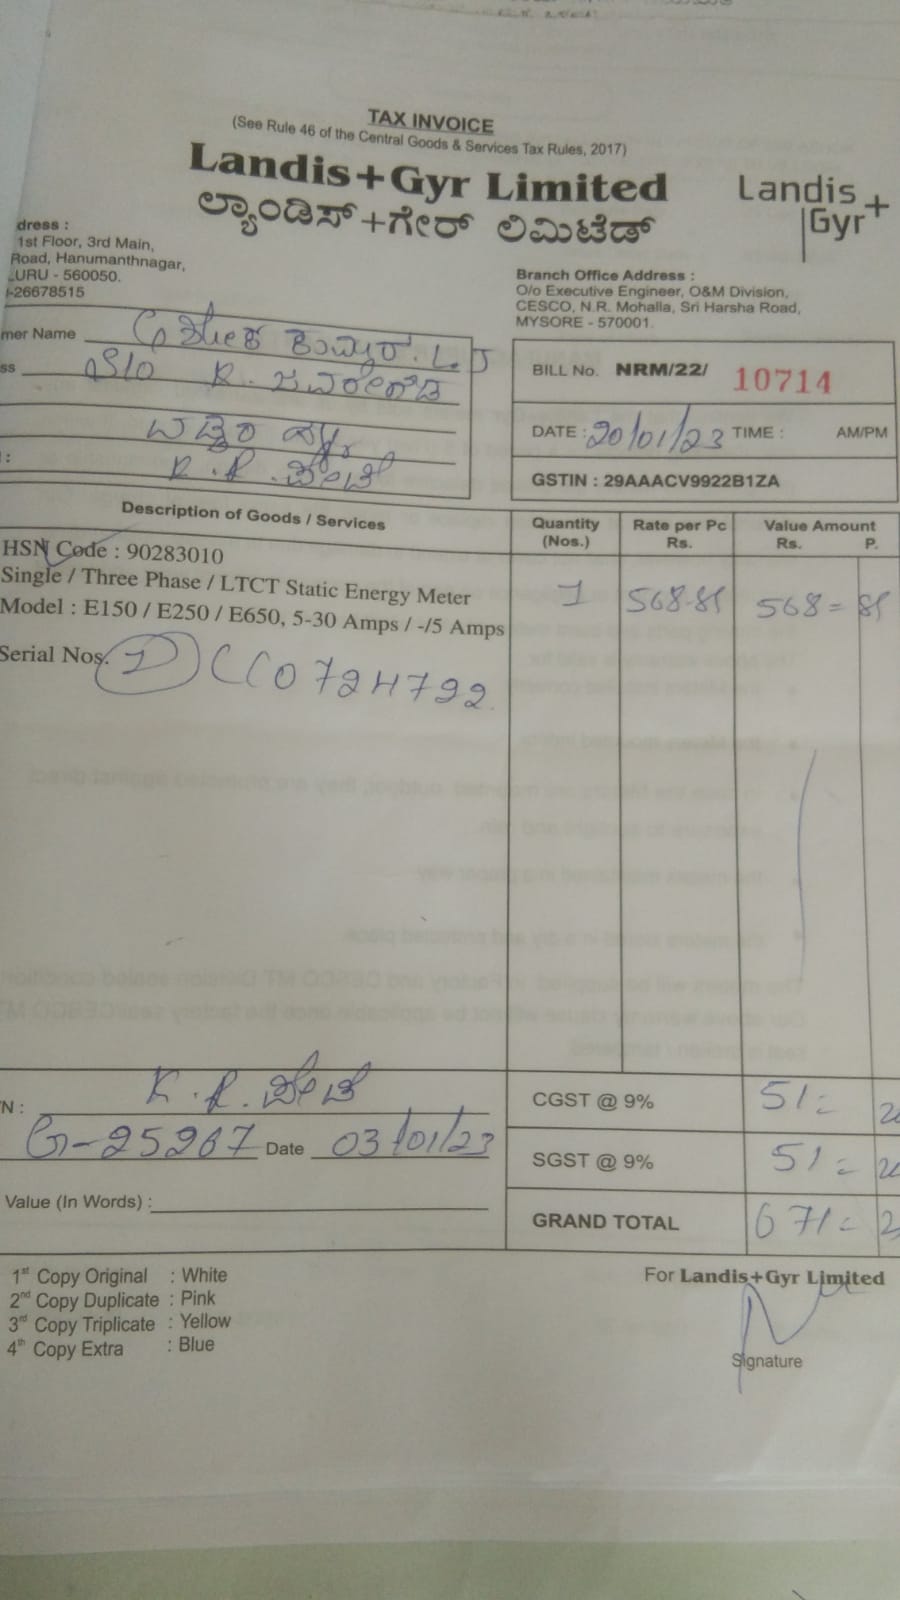 TAX INVOICE
(See Rule 46 of the Central Goods & Services Tax Rules, 2017)
Landis+Gyr Limited
ಲ್ಯಾಂಡಿಸ್+ಗೇರ್ ಲಿಮಿಟೆಡ್
Landis+
Gyr
dress :
1st Floor, 3rd Main,
Road, Hanumanthnagar,
URU - 560050.
-26678515
Branch Office Address :
O/o Executive Engineer, O&M Division,
CESCO, N.R. Mohalla, Sri Harsha Road,
MYSORE - 570001.
mer Name ಅಶೋಕ ಕುಮಾರ್. L.J
ss S/o K. ಜವರೇಗೌಡ
K.R.ಪೇಟೆ
BILL No. NRM/22/ 10714
DATE : 20/01/23 TIME : AM/PM
GSTIN : 29AAACV9922B1ZA
Description of Goods / Services Quantity (Nos.) Rate per Pc Rs. Value Amount Rs. P.
HSN Code : 90283010
Single / Three Phase / LTCT Static Energy Meter
Model : E150 / E250 / E650, 5-30 Amps / -/5 Amps
1 568-81 568= 81
Serial Nos. 1)
K.R.ಪೇಟೆ
CGST @ 9% 51=
G-25267 Date 03/01/23
SGST @ 9% 51=
Value (In Words) :
GRAND TOTAL 671=
1st Copy Original : White
2nd Copy Duplicate : Pink
3rd Copy Triplicate : Yellow
4th Copy Extra : Blue
For Landis+Gyr Limited
Signature